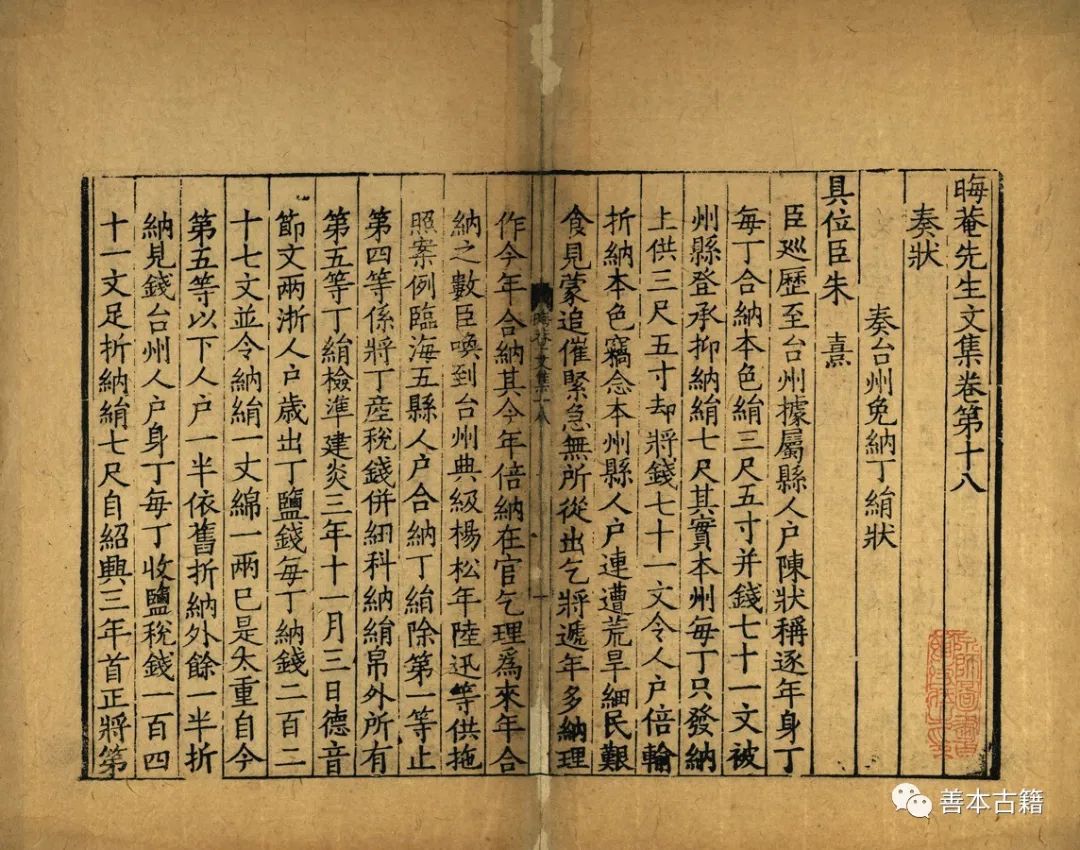 晦菴先生文集卷第十八
奏狀
奏台州免納丁絹狀
具位臣朱熹
臣巡歷至台州據屬縣人户陳狀稱逐年身丁
每丁合納本色絹三尺五寸并錢七十一文被
州縣登承抑納絹七尺其實本州每丁只發納
上供三尺五寸却將錢七十一文令人户倍輸
折納本色竊念本州縣人户連遭荒旱細民艱
食見蒙追催緊急無所從出乞將遞年多納理
晦菴文集十八
一
作今年合納其今年倍納在官乞理爲來年合
納之數臣喚到台州典級楊松年陸迅等供拖
照案例臨海五縣人户合納丁絹除第一等止
第四等係將丁産稅錢併紐科納絹帛外所有
第五等丁絹檢準建炎三年十一月三日德音
節文兩浙人户歲出丁鹽錢每丁納錢二百二
十七文並令納絹一丈綿一兩巳是太重自今
第五等以下人户一半依舊折納外餘一半折
納見錢台州人户身丁每丁收鹽稅錢一百四
十一文足折納絹七尺自紹興三年首正將第
善本古籍